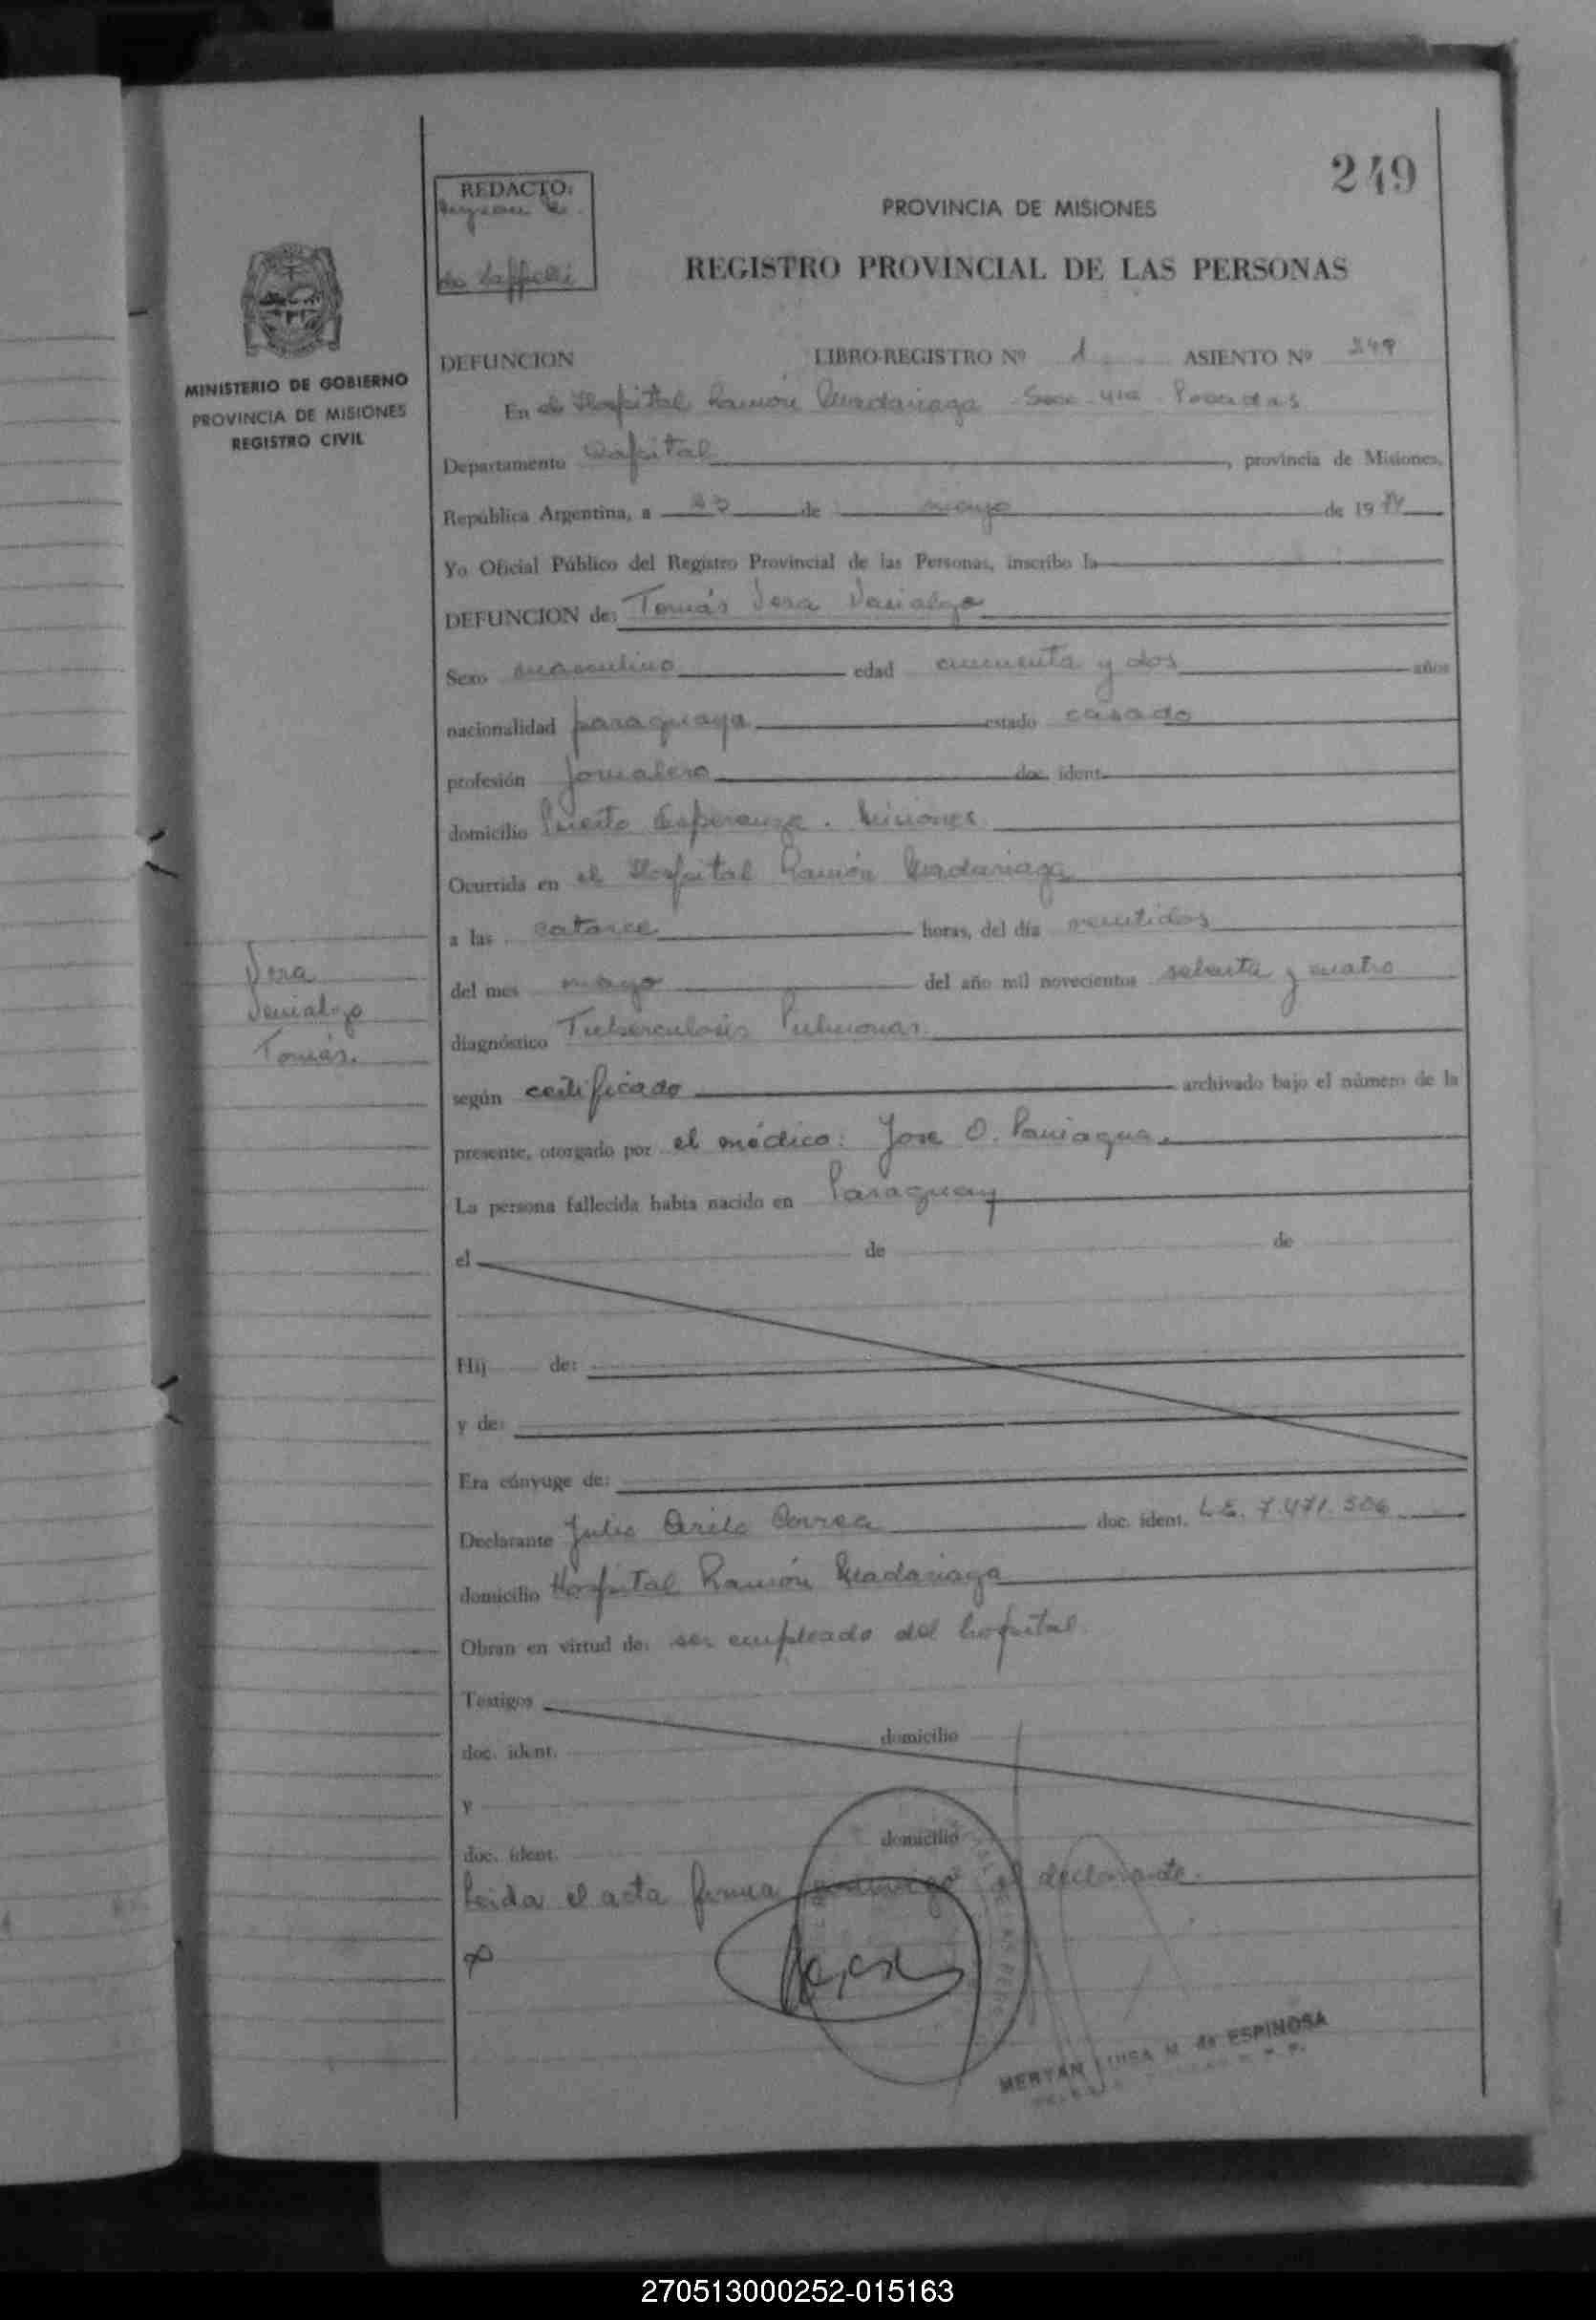 249
REDACTO:
PROVINCIA DE MISIONES
REGISTRO PROVINCIAL DE LAS PERSONAS
MINISTERIO DE GOBIERNO
PROVINCIA DE MISIONES
REGISTRO CIVIL
DEFUNCION LIBRO-REGISTRO Nº 1 ASIENTO Nº 249
En el Hospital Ramón Madariaga Posadas
Departamento Capital, provincia de Misiones,
República Argentina, a 23 de mayo de 1974
Yo Oficial Público del Registro Provincial de las Personas, inscribo la
DEFUNCION de: Tomás Vera
Sexo masculino edad cincuenta y dos años
nacionalidad paraguaya estado casado
profesión jornalero doc. ident.
domicilio Puerto Esperanza. Misiones
Ocurrida en el Hospital Ramón Madariaga
a las catorce horas, del día veintidos
del mes mayo del año mil novecientos setenta y cuatro
Vera
Tomás.
diagnóstico Tuberculosis Pulmonar
según certificado archivado bajo el número de la
presente, otorgado por el médico: Jose O. Paniagua.
La persona fallecida había nacido en Paraguay
el de de
Hij de:
y de:
Era cónyuge de:
Declarante Julio Cirilo Correa doc. ident. L.E. 7.471.506
domicilio Hospital Ramón Madariaga
Obran en virtud de: ser empleado del hospital.
Testigos
doc. ident. domicilio
y
doc. ident. domicilio
Leida el acta firma conmigo el declarante.
MERYAN LUISA M. de ESPINOSA
270513000252-015163